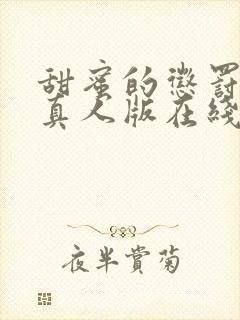 甜蜜的懲罰
真人版在綫
夜半赏菊